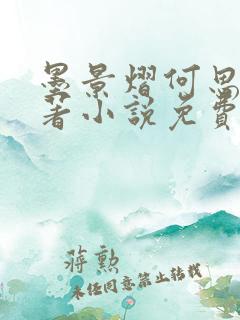 墨景熠何思
著小说免费
蒋勲
未经同意禁止转载